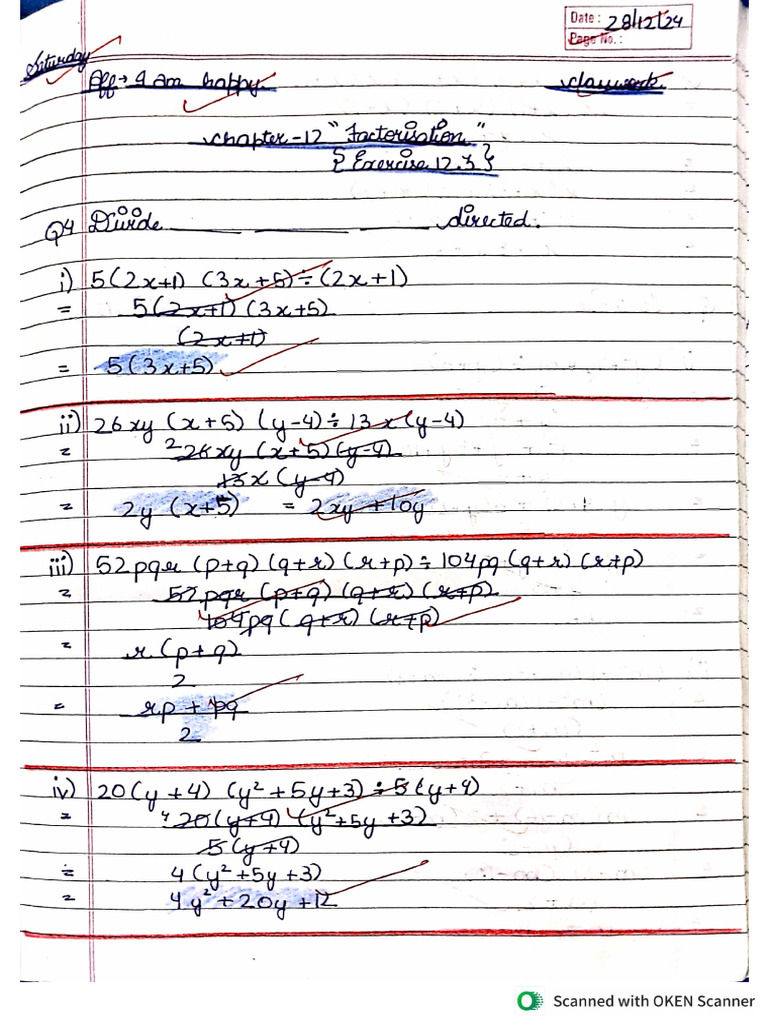 Date: 28/12/24
Page No.:
Saturday
Aff → I am happy.
classwork.
Chapter-12 "Factorisation".
{Exercise 12.3}
Q4 Divide ___ ___ ___ directed.
i) 5(2x+1) (3x+5) ÷ (2x+1)
= 5(2x+1) (3x+5)
(2x+1)
= 5(3x+5)
ii) 26xy (x+5) (y-4) ÷ 13x (y-4)
= 2 26xy (x+5) (y-4)
13x (y-4)
= 2y (x+5) = 2xy + 10y
iii) 52pqr (p+q) (q+r) (r+p) ÷ 104pq (q+r) (r+p)
= 52pqr (p+q) (q+r) (r+p)
104pq (q+r) (r+p)
= r (p+q)
2
= rp + pq
2
iv) 20(y+4) (y²+5y+3) ÷ 5(y+4)
= 4 20(y+4) (y²+5y+3)
5(y+4)
= 4(y²+5y+3)
= 4y²+20y+12
Scanned with OKEN Scanner